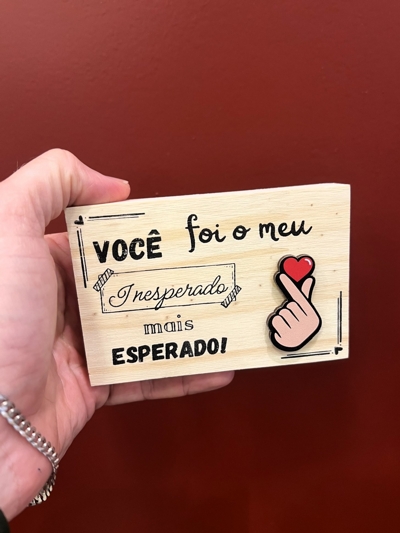 VOCÊ foi o meu
Inesperado
mais
ESPERADO!